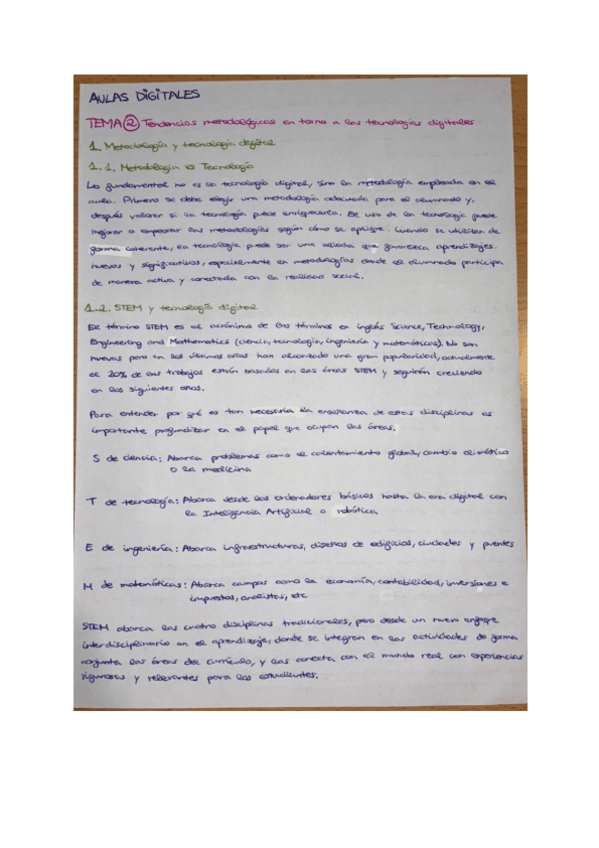 AULAS DIGITALES
TEMA 2 Tendencias metodológicas en torno a las tecnologías digitales
1. Metodología y tecnología digital
1.1. Metodología vs Tecnología
Lo fundamental no es la tecnología digital, sino la metodología empleada en el
aula. Primero se debe elegir una metodología adecuada para el alumnado y,
después valorar si la tecnología puede enriquecerla. El uso de la tecnología puede
mejorar o empeorar las metodologías según cómo se aplique. Cuando se utilicen de
forma coherente, la tecnología puede ser una aliada que favorezca aprendizajes
nuevos y significativos, especialmente en metodologías donde el alumnado participa
de manera activa y conectada con la realidad social.
1.2. STEM y tecnología digital
El término STEM es el acrónimo de los términos en inglés Science, Technology,
Engineering and Mathematics (ciencia, tecnología, ingeniería y matemáticas). No son
nuevas pero en los últimos años han alcanzado una gran popularidad, actualmente
el 20% de los trabajos están basados en las áreas STEM y seguirán creciendo
en los siguientes años.
Para entender por qué es tan necesaria la enseñanza de estas disciplinas es
importante profundizar en el papel que ocupan las áreas.
S de ciencia: Abarca problemas como el calentamiento global, cambio climático
o la medicina
T de tecnología: Abarca desde los ordenadores básicos hasta la era digital con
la Inteligencia Artificial o robótica
E de ingeniería: Abarca infraestructuras, diseños de edificios, ciudades y puentes
M de matemáticas: Abarca campos como la economía, contabilidad, inversiones e
impuestos, analistas, etc
STEM abarca las cuatro disciplinas tradicionales, pero desde un nuevo enfoque
interdisciplinario en el aprendizaje, donde se integran en las actividades de forma
conjunta las áreas del currículo, y las conecta con el mundo real con experiencias
rigurosas y relevantes para los estudiantes.